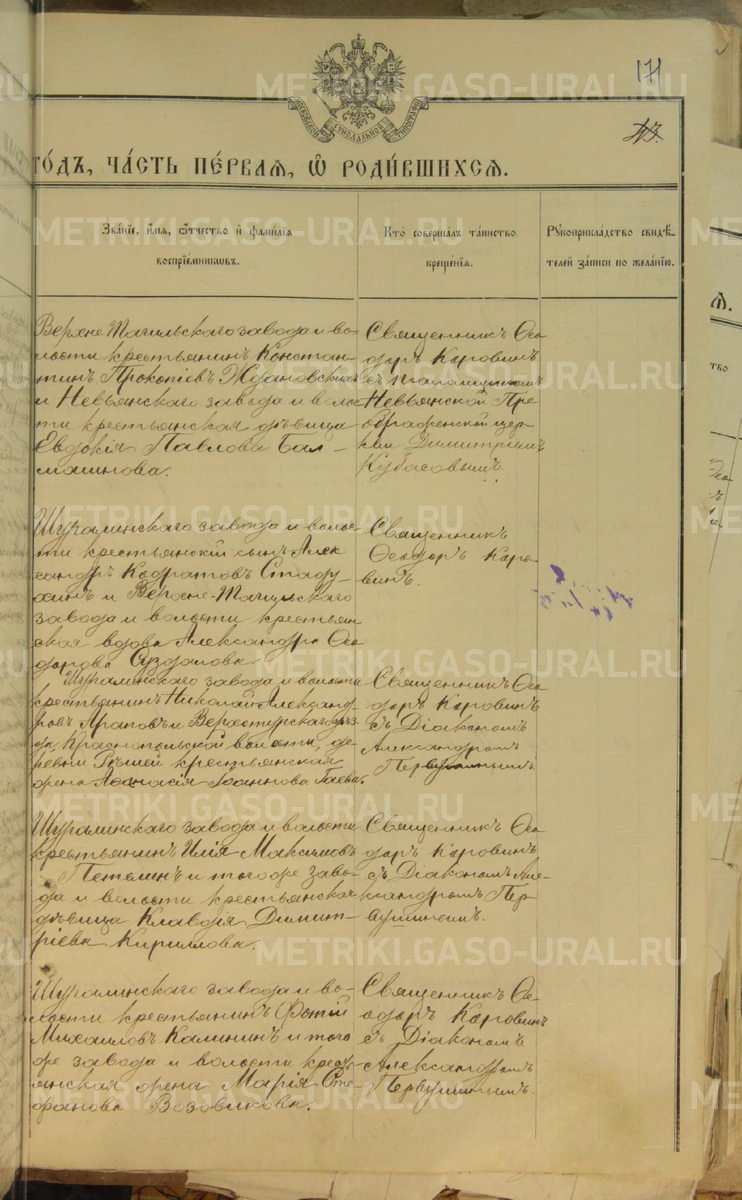 171
МОСКОВСКОЙ СѴНОДАЛЬНОЙ ТИПОГРАФІИ
ГО́ДЪ, ЧА́СТЬ ПЕ́РВАЯ, Ѡ҆ РОДИ́ВШИХСЯ.
Зва́нїе, и҆́мя, ѻ҆́тчество и҆ фами́лїя
воспрїе́мниковъ.
Кто̀ соверша́лъ та́инство
креще́нїя.
Рꙋкоприкла́дство свидѣ́-
телей за́писи по жела́нїю.
Верхне-Тагильскаго завода и во-
лости крестьянинъ Констан-
тинъ Прокопіевъ Ждановскихъ
и Невьянскаго завода и воло-
сти крестьянская дѣвица
Евдокія Павлова Бал-
машнова.
Священникъ Ѳео-
доръ Коровинъ
съ псаломщикомъ
Невьянской Пре-
ображенской цер-
кви Димитріемъ
Кубасовымъ.
Шуралинскаго завода и воло-
сти крестьянскій сынъ Алек-
сандръ Кодратовъ Стаду-
хинъ и Верхне-Тагильскаго
завода и волости крестьян-
ская вдова Александра Ѳео-
дорова Суздалова.
Священникъ
Ѳеодоръ Коро-
винъ.
Шуралинскаго завода и волости
крестьянинъ Николай Александ-
ровъ Араповъ и Верхотурскаго уѣз-
да, Краснопольской волости, де-
ревни крестьянская
жена Аѳанасія Іоаннова Гаева.
Священникъ Ѳео-
доръ Коровинъ
съ Діакономъ
Александромъ
Первушинымъ
Шуралинскаго завода и волости
крестьянинъ Илія Максимовъ
Петелинъ и тогоже заво-
да и волости крестьянская
дѣвица Клавдія Димит-
ріева Кириллова.
Священникъ Ѳео-
доръ Коровинъ
съ Діакономъ Але-
ксандромъ Пер-
вушинымъ.
Шуралинскаго завода и во-
лости крестьянинъ Фотій
Михаиловъ Калининъ и того
же завода и волости кресть-
янская жена Марія Сте-
фанова Возовикова.
Священникъ Ѳе-
одоръ Коровинъ
съ Діакономъ
Александромъ
Первушинымъ.
METRIKI.GASO-URAL.RU
METRIKI.GASO-URAL.RU
METRIKI.GASO-URAL.RU
METRIKI.GASO-URAL.RU
METRIKI.GASO-URAL.RU
METRIKI.GASO-URAL.RU
METRIKI.GASO-URAL.RU
METRIKI.GASO-URAL.RU